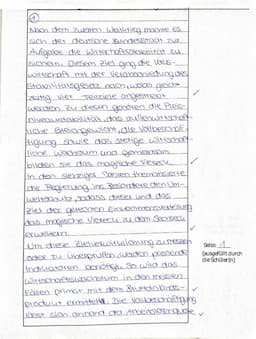 1
Nach dem zweiten Weltkrieg machte es
sich der deutsche Bundesstaat zur
Aufgabe die Wirtschaftsstabilität zu
sichern. Diesem Ziel ging die Volks-
wirtschaft mit der Verabschiedung des
Stabilitätsgesetz nach, wobei gleich-
zeitig vier Teilziele angestrebt
werden. Zu diesen gehören die Preis-
niveaustabilität, das außenwirtschaft-
liche Gleichgewicht, die Vollbeschäf-
tigung sowie das stetige Wirtschaft-
liche Wachstum und gemeinsam
bilden sie das magische Viereck.
In den siebziger Jahren thematisierte
die Regierung im Besonderen den Um-
weltschutz, sodass dieses und das
Ziel der gerechten Einkommensverteilung
das magische Viereck zu dem Sechseck
erweiterten.
Um diese Zielverwirklichung zu messen
oder zu überprüfen, werden passende
Indikatoren benötigt. So wird das
Wirtschaftswachstum in den meisten
Fällen primär mit dem Bruttoinlands-
produkt ermittelt. Die Vollbeschäftigung
lässt sich anhand der Arbeitslosenquote
Seite: 1
(ausgefüllt durch
die Schüler/in)